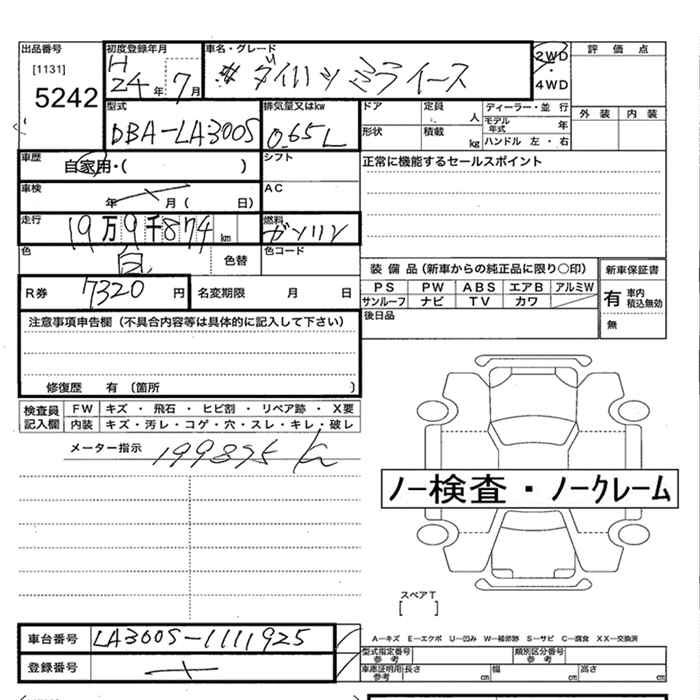 出品番号 初度登録年月 車名・グレード 2WD 評価点
[1131] H
5242 24年7月 ダイハツ ミライース ・
4WD
型式 排気量又はkw ドア 定員 人 ディーラー・並 行 外装 内装
DBA-LA300S 0.65L モデル年式 年
形状 積載 kg ハンドル 左・右
車歴 自家用・( ) シフト 正常に機能するセールスポイント
車検 年 月( 日) AC
走行 19万9千874km 燃料 ガソリン
色 白 色替 色コード
装備品(新車からの純正品に限り○印) 新車保証書
R券 7320円 名変期限 月 日 PS PW ABS エアB アルミW 有 車内積込無効
サンルーフ ナビ TV カワ
注意事項申告欄(不具合内容等は具体的に記入して下さい) 後日品 無
修復歴 有(箇所 )
検査員記入欄 FW キズ・飛石・ヒビ割・リペア跡・X要
内装 キズ・汚レ・コゲ・穴・スレ・キレ・破レ
メーター指示 199875 K
ノー検査・ノークレーム
スペアT
[ ]
車台番号 LA300S-1111925 A―キズ E―エクボ U―凹み W―補修跡 S―サビ C―腐食 XX―交換済
型式指定番号参考 類別区分番号参考
登録番号 車庫証明用参考 長さ cm 幅 cm 高さ cm